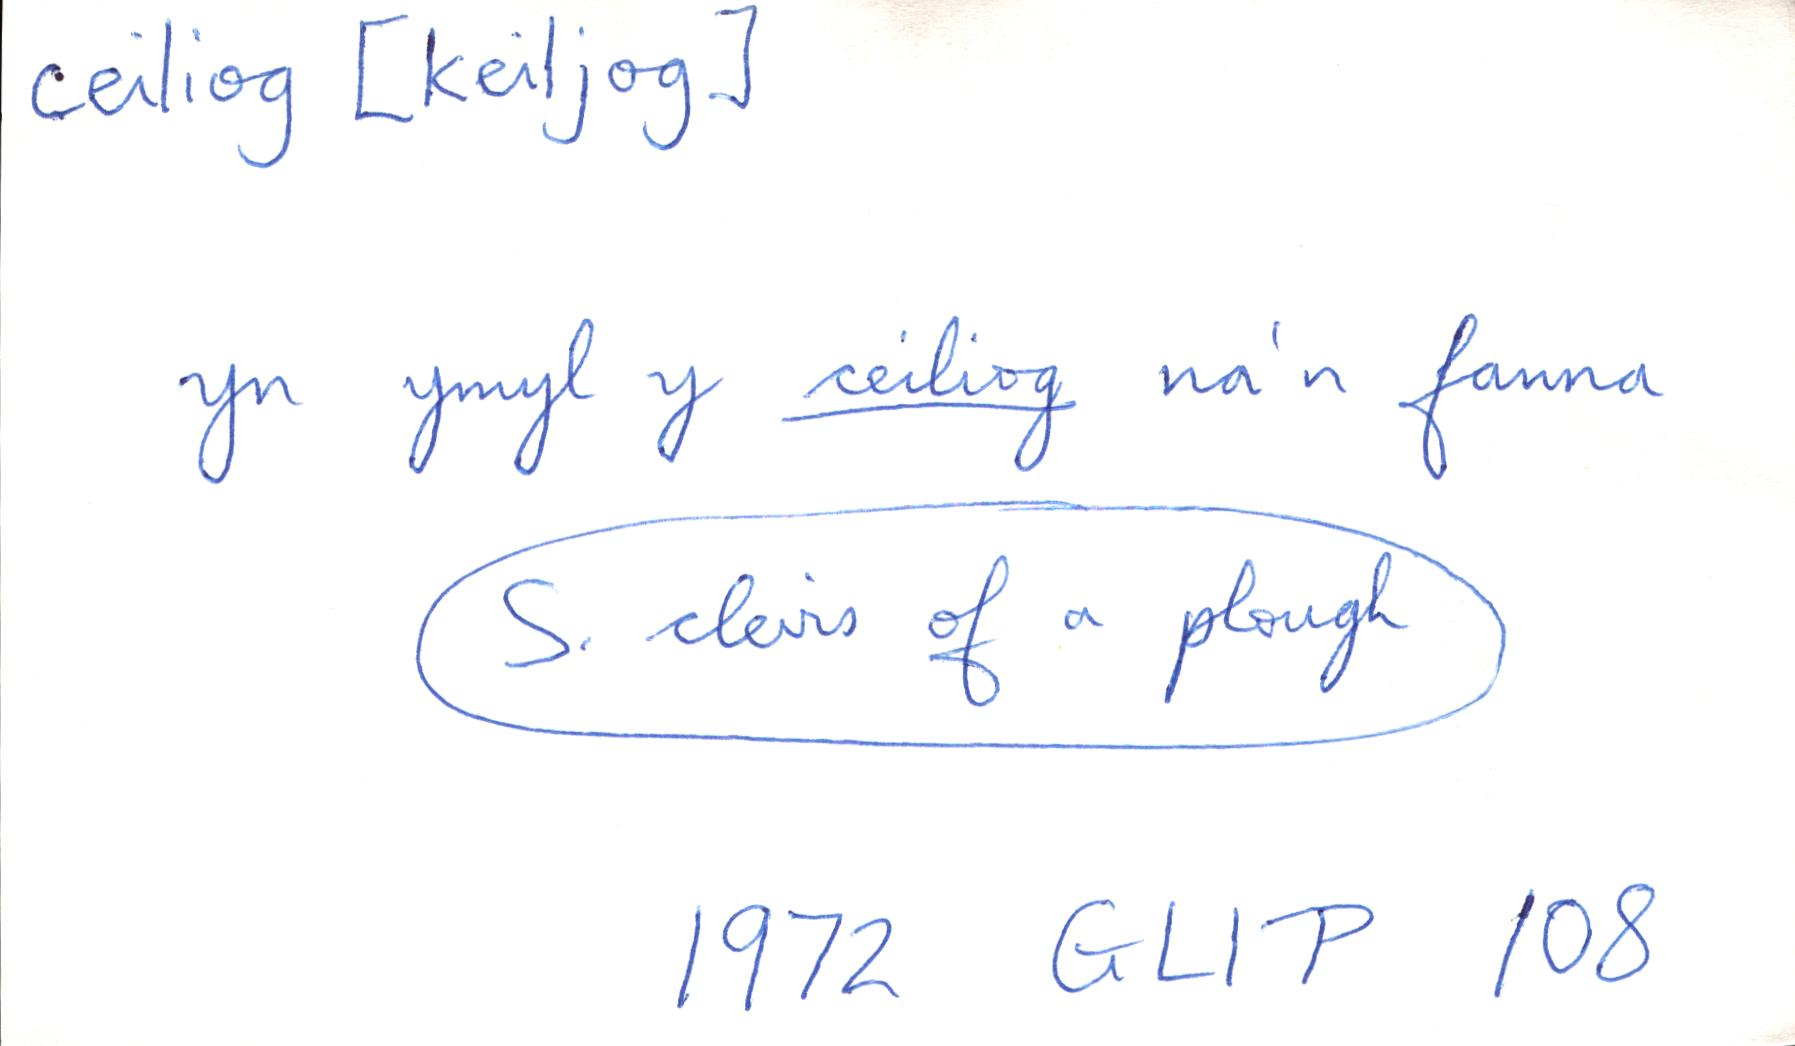 ceiliog [keiljog]
yn ymyl y ceiliog na'n fanna
S. clevis of a plough
1972 GLITP 108